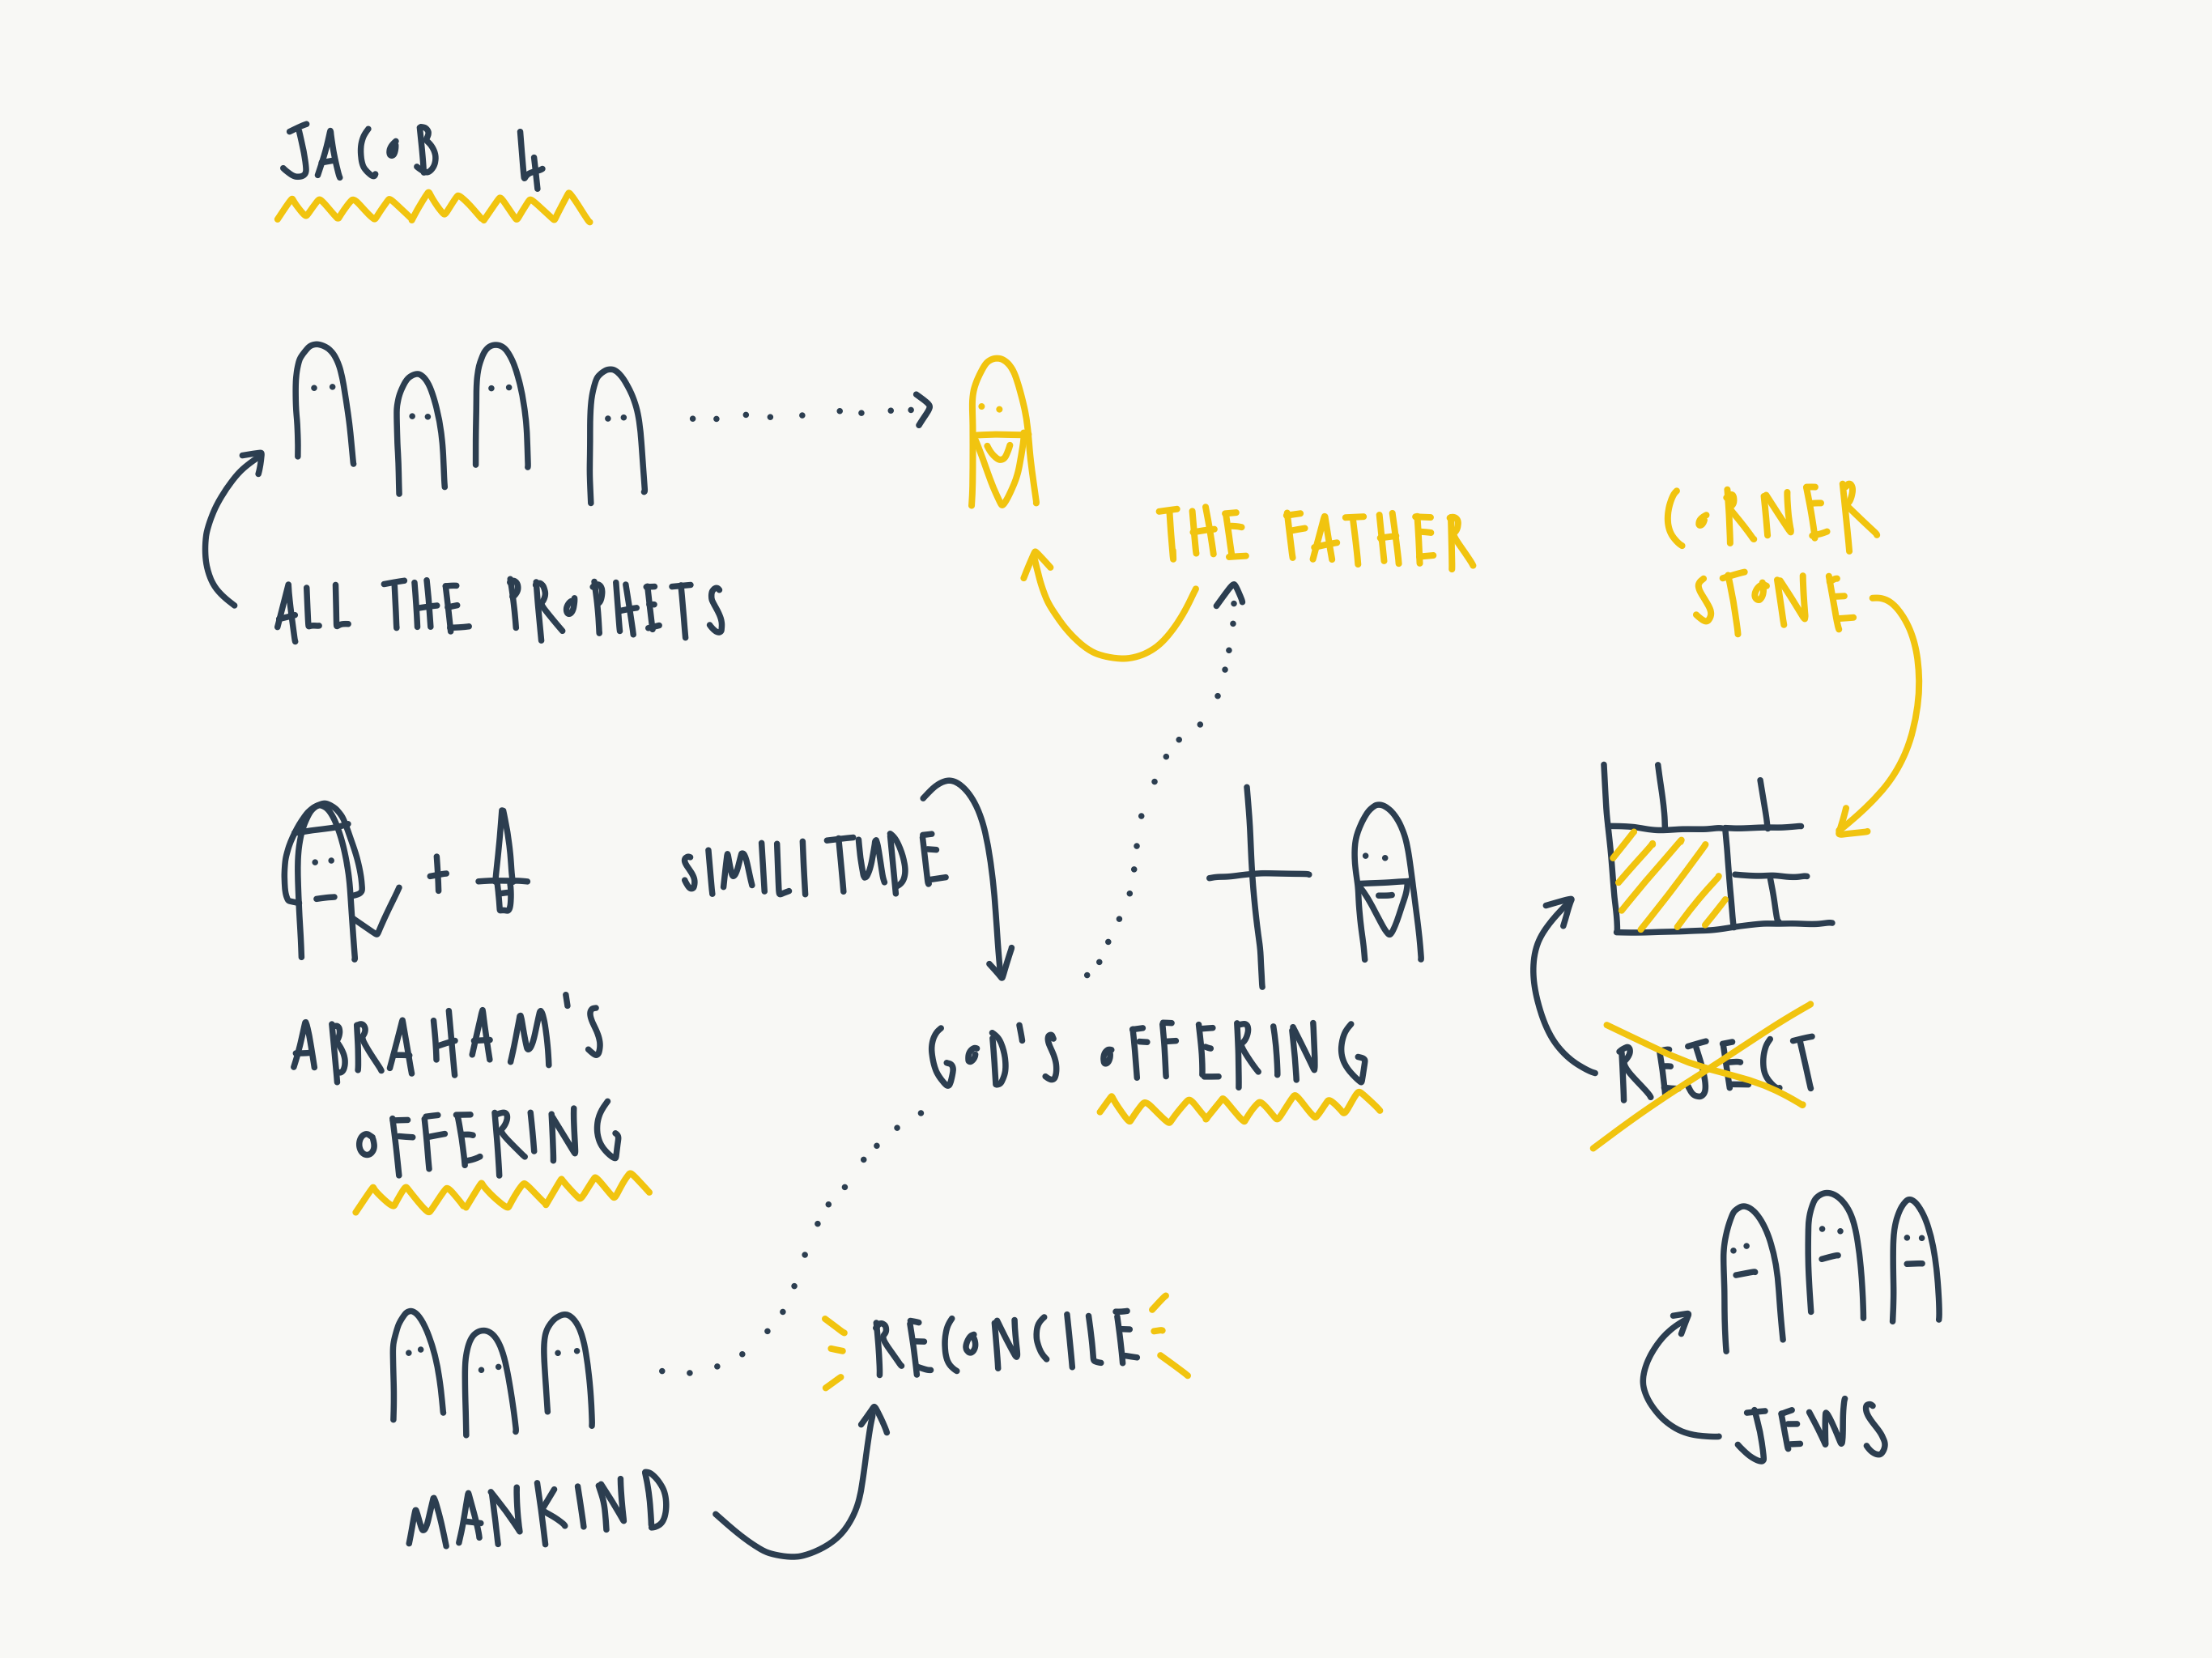 JACOB 4
ALL THE PROPHETS
THE FATHER
CORNER
STONE
+
SIMILITUDE
ABRAHAM'S
OFFERING
GOD'S OFFERING
REJECT
RECONCILE
MANKIND
JEWS